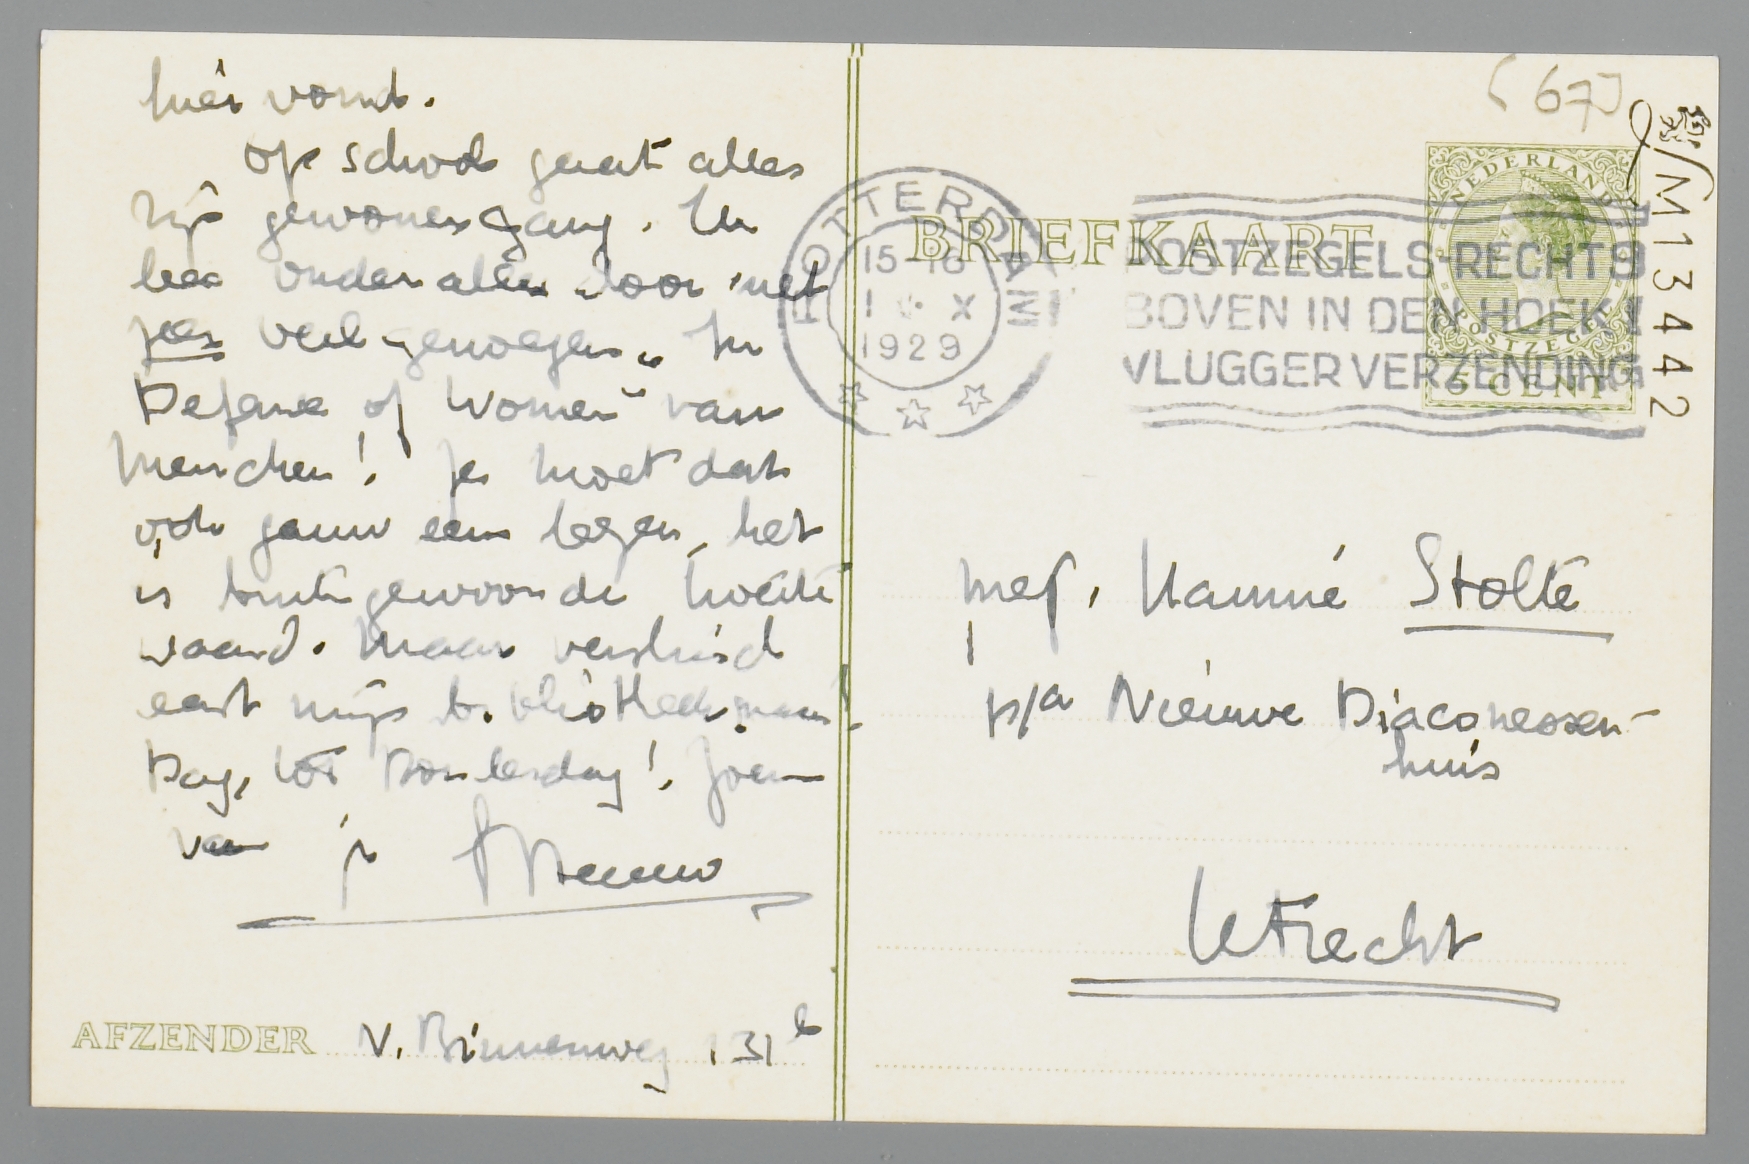 hier vond.
Op school gaat alles
zijn gewonen gang. Ik
lees onder alles door met
zéér veel genoegen „In
Defence of Women" van
Menschen! Je moet dat
ook gauw eens lezen, het
is buitengewoon de moeite
waard. Maar verslind
eerst mijn bibliotheek maar!
Dag, tot Donderdag! Zoen
van je
AFZENDER N. Binnenweg 131b
(67)
M13442
NEDERLAND
POSTZEGEL
5 CENT
BRIEFKAART
ROTTERDAM
15-16
1 X
1929
POSTZEGELS RECHTS
BOVEN IN DEN HOEK!
VLUGGER VERZENDING
Mej. Hannie Stolte
p/a Nieuwe Diaconessen-
huis
Utrecht